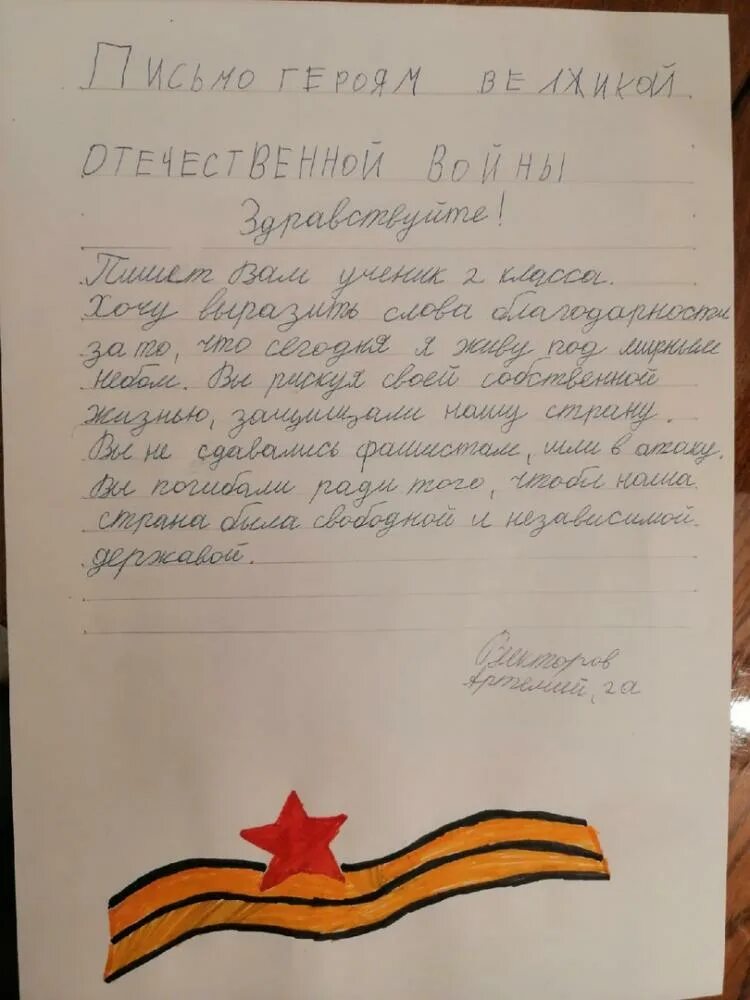 ПИСЬМО ГЕРОЯМ ВЕЛИКОЙ
ОТЕЧЕСТВЕННОЙ ВОЙНЫ
Здравствуйте!
Пишет Вам ученик 2 класса.
Хочу выразить слова благодарности
за то, что сегодня я живу под мирным
небом. Вы рискуя своей собственной
жизнью, защищали нашу страну.
Вы не сдавались фашистам, шли в атаку.
Вы погибали ради того, чтобы наша
страна была свободной и независимой
державой.
Викторов
Артемий, 2а